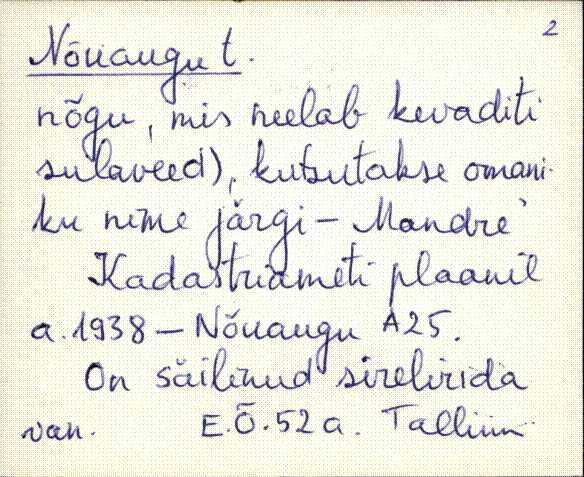 2
Nõuaugu t.
nõgu, mis neelab kevaditi
sulaveed), kutsutakse omani-
ku nime järgi – Mandre
Kadastriameti plaanil
a. 1938 – Nõuaugu A25.
On säilinud sirelirida
van. E.Õ. 52 a. Tallinn